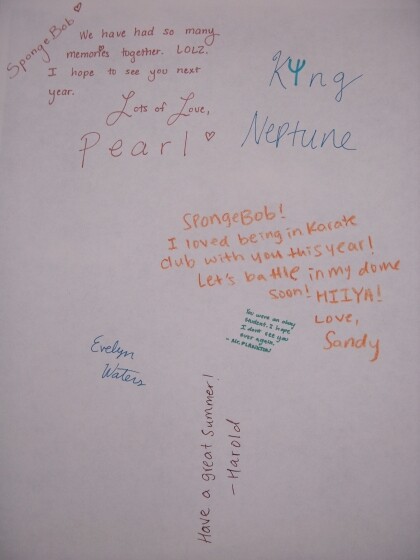 SpongeBob
We have had so many
memories together. LOLZ.
I hope to see you next
year.
Lots of Love,
Pearl
King
Neptune
SpongeBob!
I loved being in Karate
club with you this year!
Let's battle in my dome
soon! HIIYA!
Love,
Sandy
You were an okay
student. I hope
I dont see you
ever again.
- Mr. PLANKTON
Evelyn
Waters
Have a great summer!
- Harold